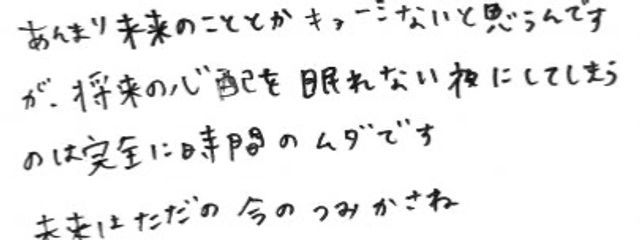 あんまり未来のこととかキョーミないと思うんです
が、将来の心配を眠れない夜にしてしまう
のは完全に時間のムダです
未来はただの今のつみかさね